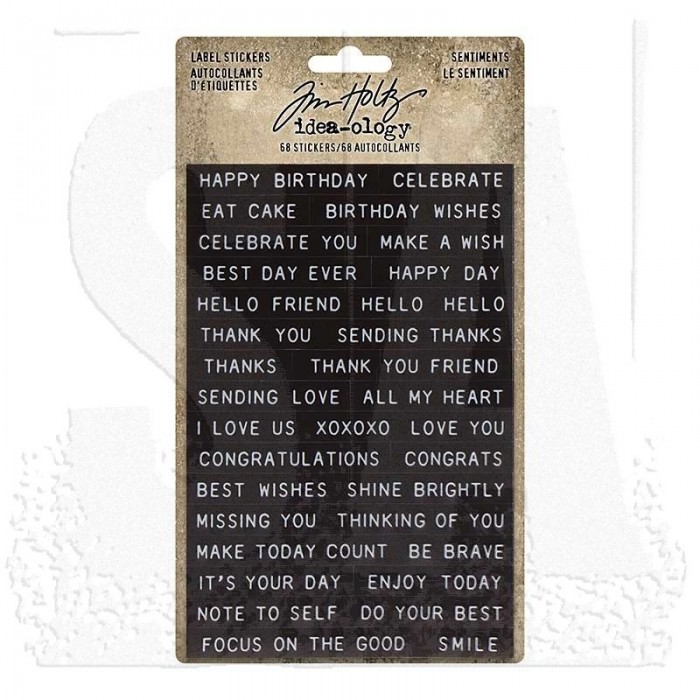 LABEL STICKERS
AUTOCOLLANTS
D'ÉTIQUETTES
SENTIMENTS
LE SENTIMENT
Tim Holtz
idea-ology
68 STICKERS/68 AUTOCOLLANTS
HAPPY BIRTHDAY CELEBRATE
EAT CAKE BIRTHDAY WISHES
CELEBRATE YOU MAKE A WISH
BEST DAY EVER HAPPY DAY
HELLO FRIEND HELLO HELLO
THANK YOU SENDING THANKS
THANKS THANK YOU FRIEND
SENDING LOVE ALL MY HEART
I LOVE US XOXOXO LOVE YOU
CONGRATULATIONS CONGRATS
BEST WISHES SHINE BRIGHTLY
MISSING YOU THINKING OF YOU
MAKE TODAY COUNT BE BRAVE
IT'S YOUR DAY ENJOY TODAY
NOTE TO SELF DO YOUR BEST
FOCUS ON THE GOOD SMILE